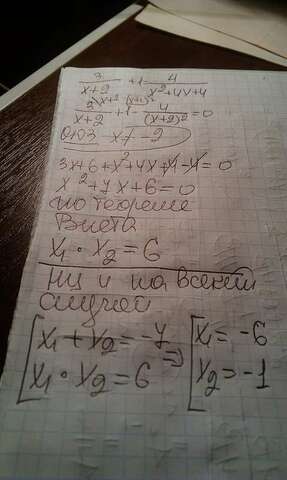 3/(x+2) + 1 - 4/(x²+4x+4)
3/(x+2) + 1 - 4/(x+2)² = 0
ОДЗ x ≠ -2
3x+6+x²+4x+4-4=0
x²+7x+6=0
по теореме
Виета
x₁ · x₂ = 6
Ну и на всякий
случай
[x₁ + x₂ = -7 => [x₁ = -6
x₁ · x₂ = 6 x₂ = -1